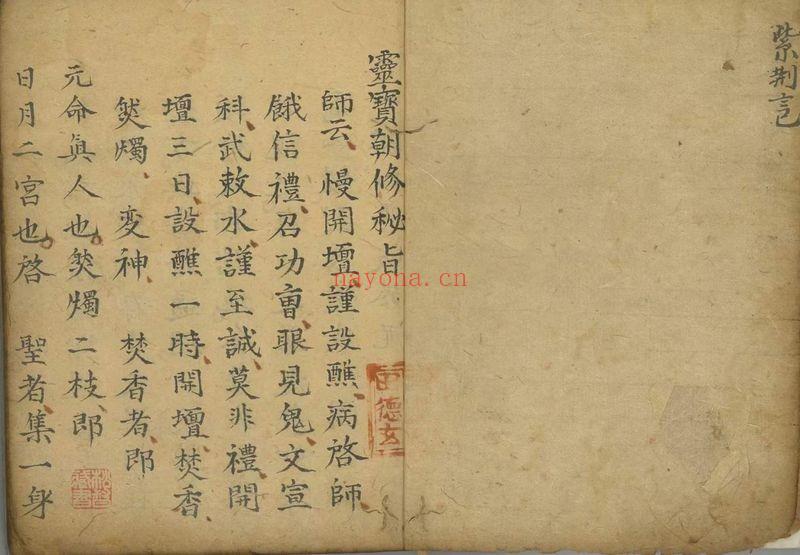 紫荆言
靈寶朝修秘旨
師云慢開壇謹設醮病啓師
餓信禮召功曺眼見鬼文宣
科武敕水謹至誠莫非禮開
壇三日設醮一時開壇焚香
燃燭変神焚香者郎
元命眞人也燃燭二枝郎
日月二宮也啓聖者集一身
德玄
nayona.cn